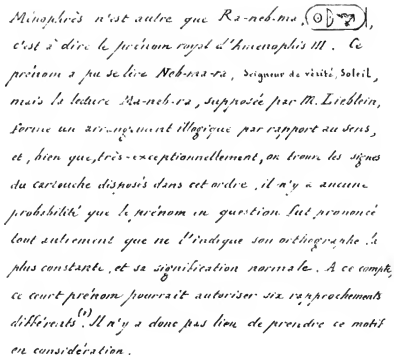 Minophrès n'est autre que Ra-neb-ma,
c'est à dire le prénom royal d'Amenophis III. Ce
prénom a pu se lire Neb-ma-ra, Seigneur de vérité, Soleil,
mais la lecture Ma-neb-ra, supposée par M. Lieblein,
forme un arrangement illogique par rapport au sens,
et, bien que, très-exceptionnellement, on trouve les signes
du cartouche disposés dans cet ordre, il n'y a aucune
probabilité que le prénom en question fut prononcé
tout autrement que ne l'indique son orthographe la
plus constante, et sa signification normale. A ce compte,
ce court prénom pourrait autoriser six rapprochements
différents. Il n'y a donc pas lieu de prendre ce motif
en considération.